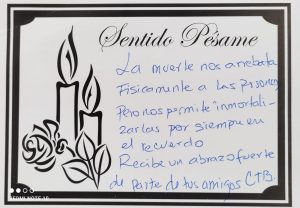 Sentido Pésame
La muerte nos arrebata
Físicamente a las Personas
Pero nos permite inmortali-
zarlas por siempre en
el recuerdo
Recibe un abrazo fuerte
de parte de tus amigos CTB.
REDMI NOTE 10